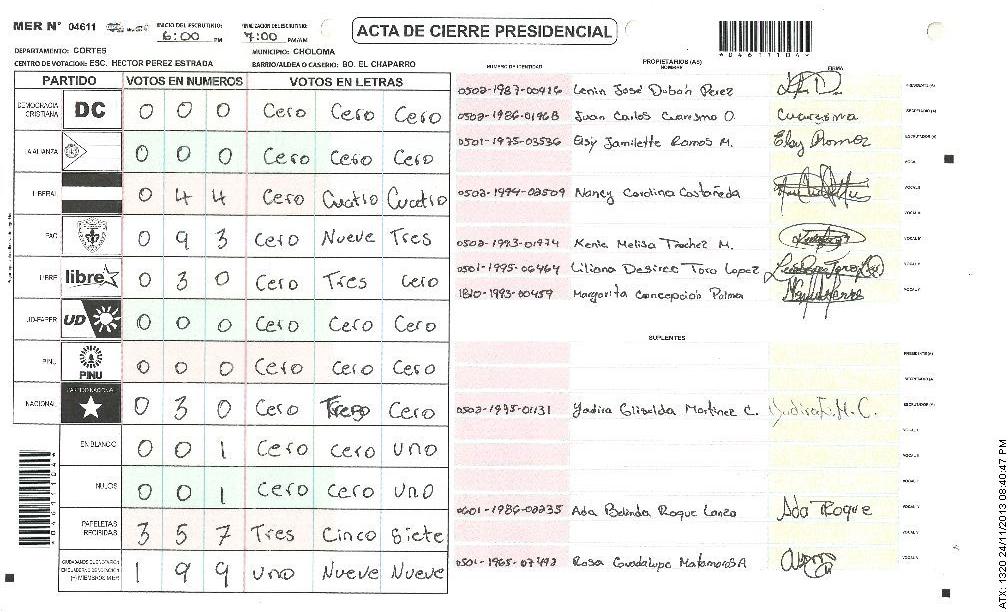 MER N° 04611
INICIO DEL ESCRUTINIO:
6:00 PM
FINALIZACION DEL ESCRUTINIO:
7:00 PM/AM
ACTA DE CIERRE PRESIDENCIAL
DEPARTAMENTO: CORTES
MUNICIPIO: CHOLOMA
CENTRO DE VOTACION: ESC. HECTOR PEREZ ESTRADA
BARRIO/ALDEA O CASERIO: BO. EL CHAPARRO
*04611104*
PARTIDO VOTOS EN NUMEROS VOTOS EN LETRAS
DEMOCRACIA CRISTIANA DC 0 0 0 Cero Cero Cero
LA ALIANZA 0 0 0 Cero Cero Cero
LIBERAL 0 4 4 Cero Cuatro Cuatro
PAC 0 9 3 Cero Nueve Tres
LIBRE libre 0 3 0 Cero Tres Cero
UD-FAPER UD 0 0 0 Cero Cero Cero
PINU PINU 0 0 0 Cero Cero Cero
NACIONAL PARTIDO NACIONAL 0 3 0 Cero Tres Cero
EN BLANCO 0 0 1 Cero Cero uno
NULOS 0 0 1 Cero Cero uno
PAPELETAS RECIBIDAS 3 5 7 Tres Cinco Siete
1 9 9 uno Nueve Nueve
(+) MIEMBROS MER
*04611104*
NUMERO DE IDENTIDAD
PROPIETARIOS (AS)
NOMBRE
FIRMA
0502-1987-00416 Lenin José Dubón Perez PRESIDENTE (A)
0502-1986-01968 Juan Carlos Cuaresma O. Cuaresma SECRETARIO (A)
0501-1975-03536 Elsy Jamilette Ramos M. Elsy Ramos ESCRUTADOR (A)
VOCAL I
0502-1994-02509 Nancy Carolina Castañeda VOCAL II
VOCAL III
0502-1993-01974 Kenia Melisa Trochez M. VOCAL IV
0501-1995-06464 Liliana Desiree Toro Lopez VOCAL V
1810-1993-00459 Margarita Concepcion Palma VOCAL V
SUPLENTES
PRESIDENTE (A)
SECRETARIO (A)
0502-1995-01131 Yadira Griselda Martinez C. Yadira G. M. C. ESCRUTADOR (A)
VOCAL I
VOCAL II
VOCAL III
0601-1986-02235 Ada Belinda Roque Lanza Ada Roque VOCAL IV
VOCAL V
0501-1965-07492 Rosa Guadalupe Matamoros A VOCAL V
ATX: 1320 24/11/2013 08:40:47 PM